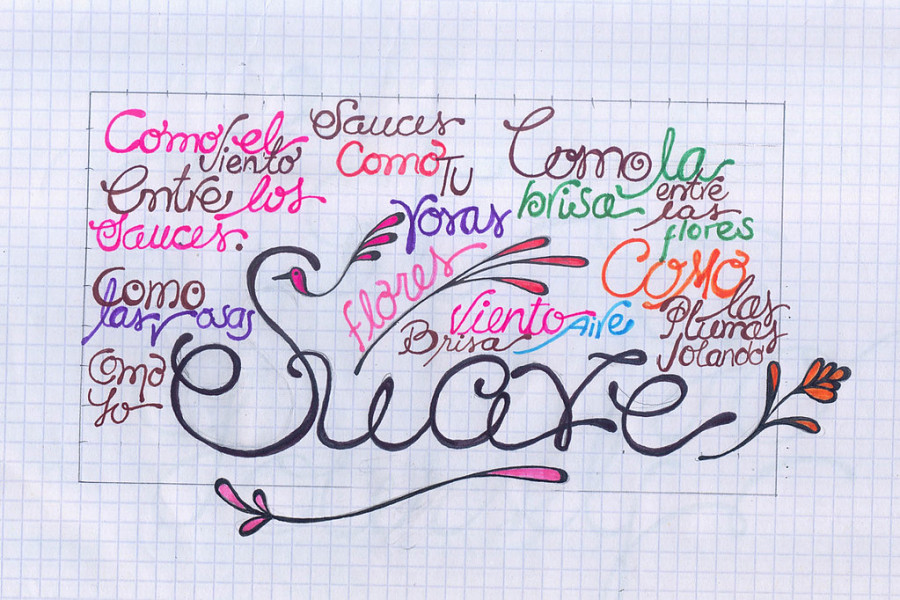 Como el
viento
Entre los
Sauces.
Sauces
Como Tu
rosas
Como la
brisa entre
las
flores
Como
las rosas
flores
Viento
Aire
Brisa
Como
las
Plumas
Volando
Como
Yo
Suave